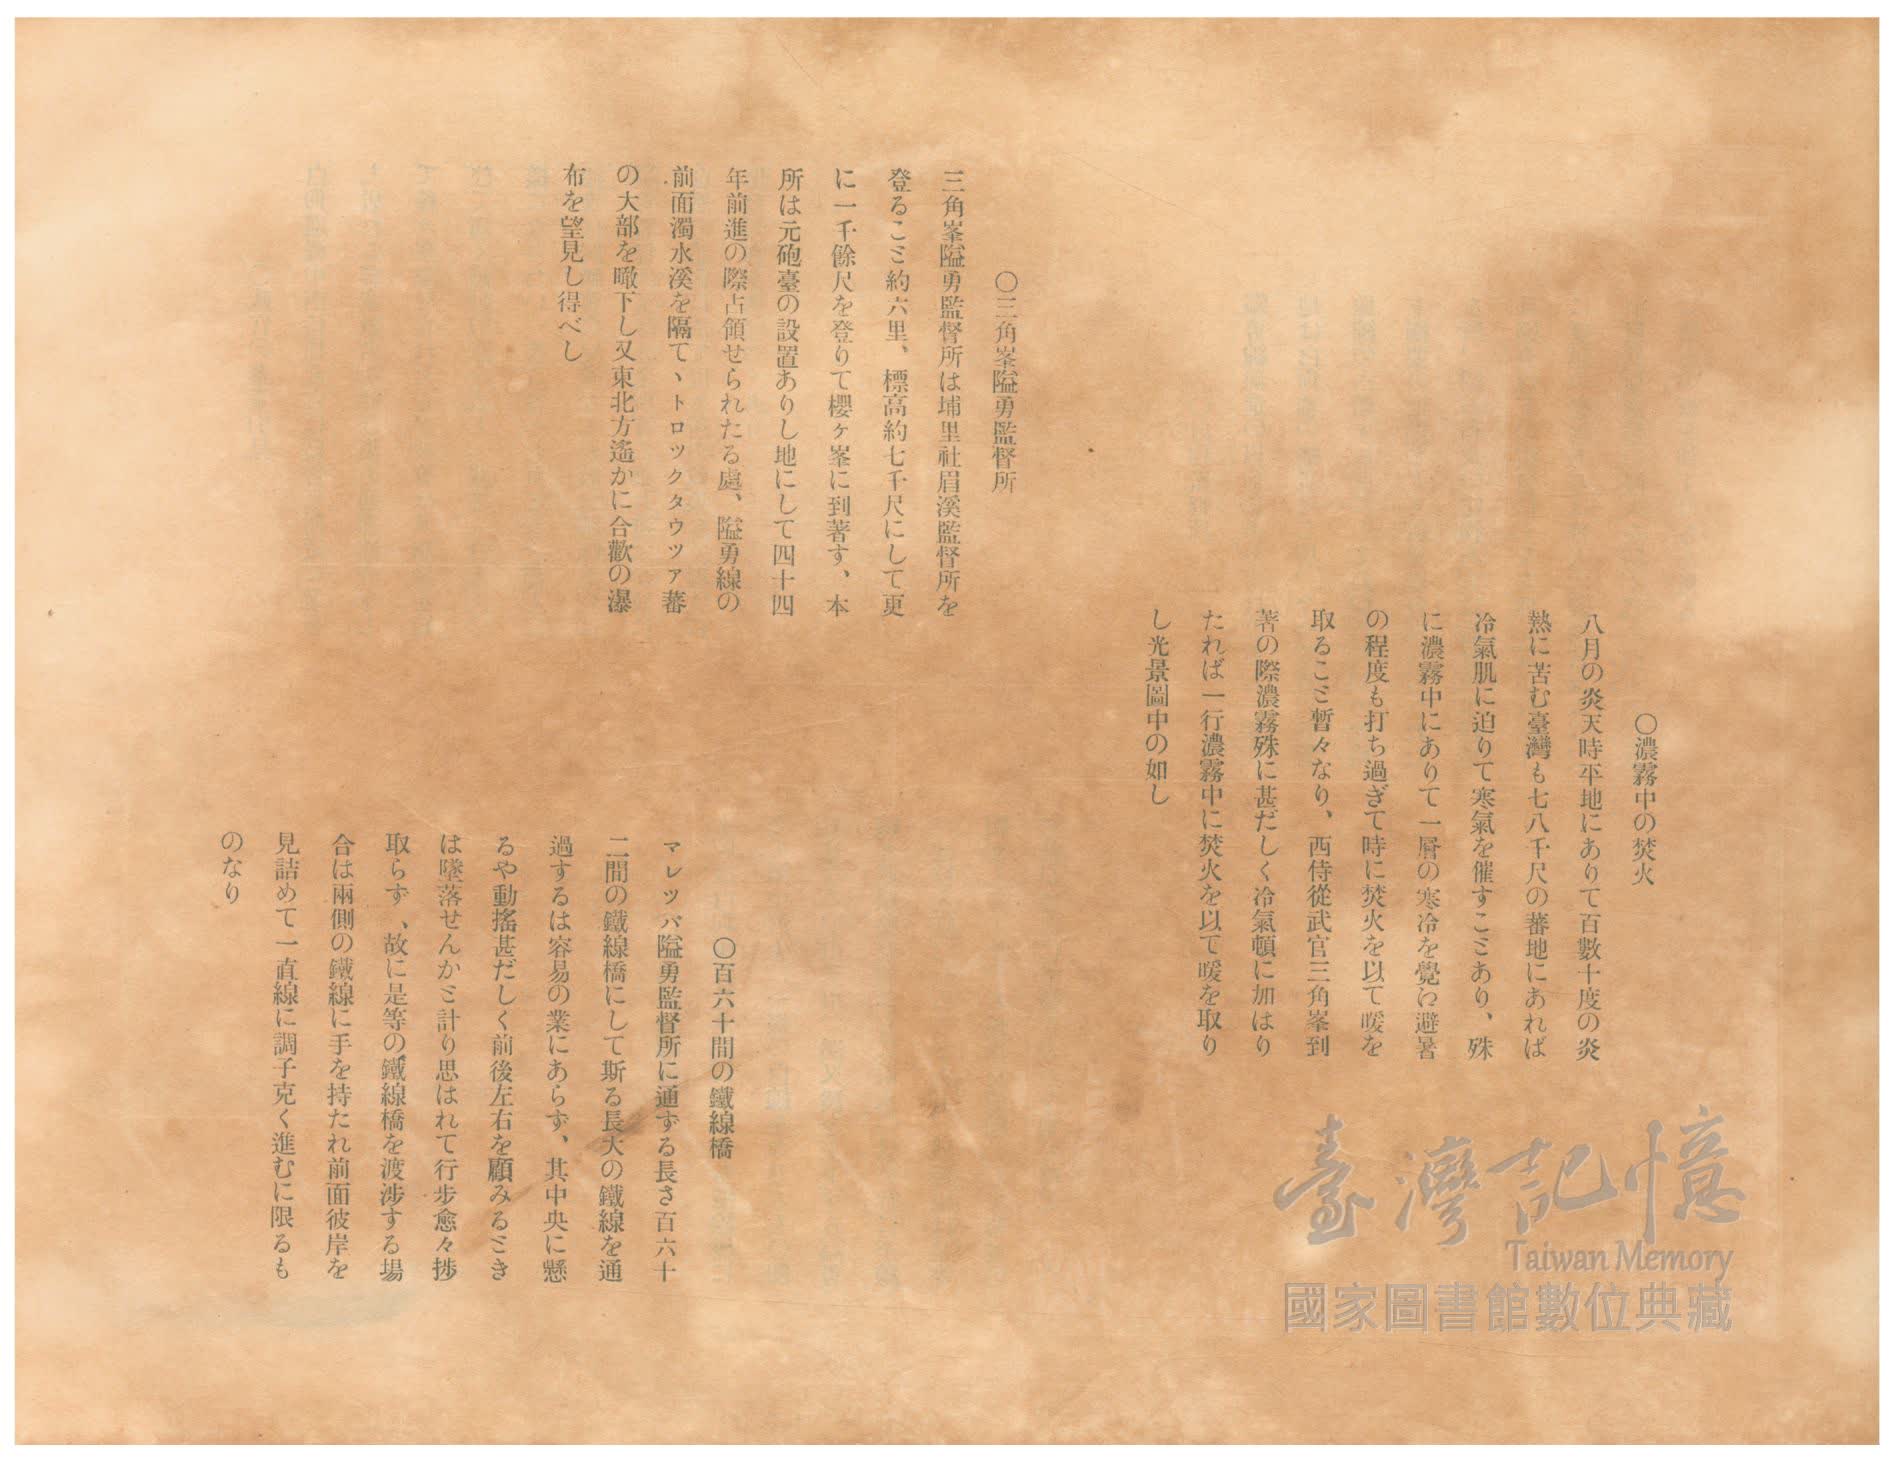 〇濃霧中の焚火
八月の炎天時平地にありて百數十度の炎
熱に苦む臺灣も七八千尺の蕃地にあれば
冷氣肌に迫りて寒氣を催すこミあり、殊
に濃霧中にありて一層の寒冷を覺に避暑
の程度も打ち過ぎて時に焚火を以て暖を
取るこミ暫々なり、西侍從武官三角峯到
著の際濃霧殊に甚だしく冷氣頓に加はり
たれば一行濃霧中に焚火を以て暖を取り
し光景圖中の如し
〇三角峯隘勇監督所
三角峯隘勇監督所は埔里社眉溪監督所を
登るこミ約六里、標高約七千尺にして更
に一千餘尺を登りて櫻ヶ峯に到著す、本
所は元砲臺の設置ありし地にして四十四
年前進の際占領せられたる處、隘勇線の
前面濁水溪を隔て、トロツクタウツァ蕃
の大部を瞰下し又東北方遙かに合歡の瀑
布を望見し得べし
〇百六十間の鐵線橋
マレツパ隘勇監督所に通ずる長さ百六十
二間の鐵線橋にして斯る長大の鐵線を通
過するは容易の業にあらず、其中央に懸
るや動搖甚だしく前後左右を顧みるミき
は墜落せんかミ計り思はれて行步愈々捗
取らず、故に是等の鐵線橋を渡涉する場
合は兩側の鐵線に手を持たれ前面彼岸を
見詰めて一直線に調子克く進むに限るも
のなり
臺灣記憶
Taiwan Memory
國家圖書館數位典藏